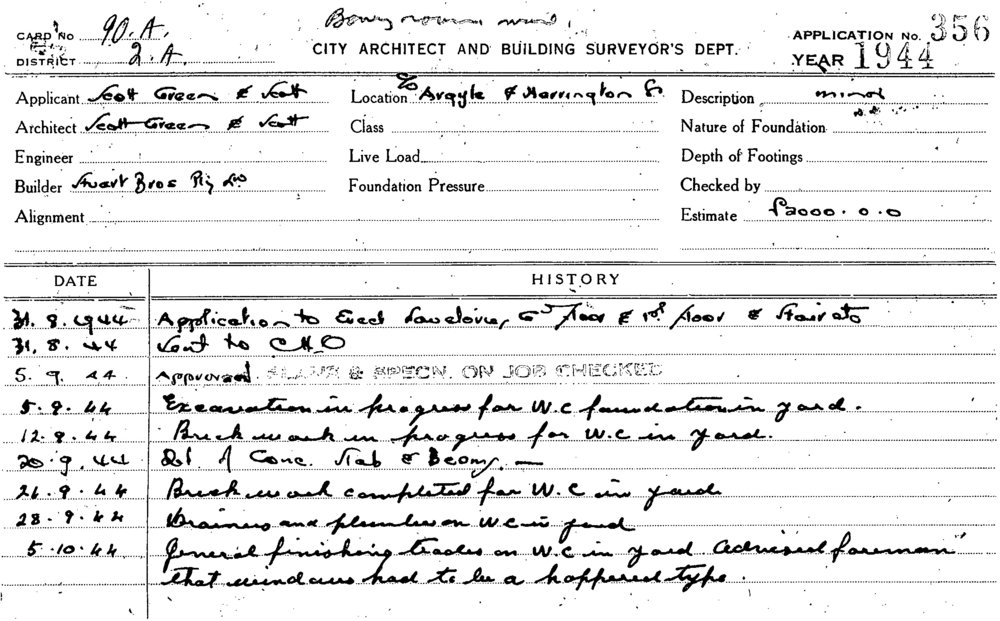 CARD No 90. A.
DISTRICT 2. A.
CITY ARCHITECT AND BUILDING SURVEYOR'S DEPT.
APPLICATION No. 356
YEAR 1944
Applicant Scott Green & Scott
Location Argyle & Harrington St.
Description minor
Architect Scott Green & Scott
Class
Nature of Foundation
Engineer
Live Load
Depth of Footings
Builder Stuart Bros Pty Ltd
Foundation Pressure
Checked by
Alignment
Estimate £2000. 0. 0
DATE HISTORY
31. 8. 1944 Application to Erect Lavatories, Gd floor & 1st floor & Stair etc
31. 8. 44 Sent to C.H.O
5. 9. 44 Approved. PLANS & SPECN. ON JOB CHECKED
5. 9. 44 Excavation in progress for W.C foundation in yard.
12. 9. 44 Brick work in progress for W.C in yard.
20. 9. 44 Det of Conc. Slab & Beams. —
26. 9. 44 Brick work completed for W.C in yard
28. 9. 44 Drainers and plumber on W C in yard
5. 10. 44 General finishing trades on W.C in yard Advised foreman
that windows had to be a hoppered type.